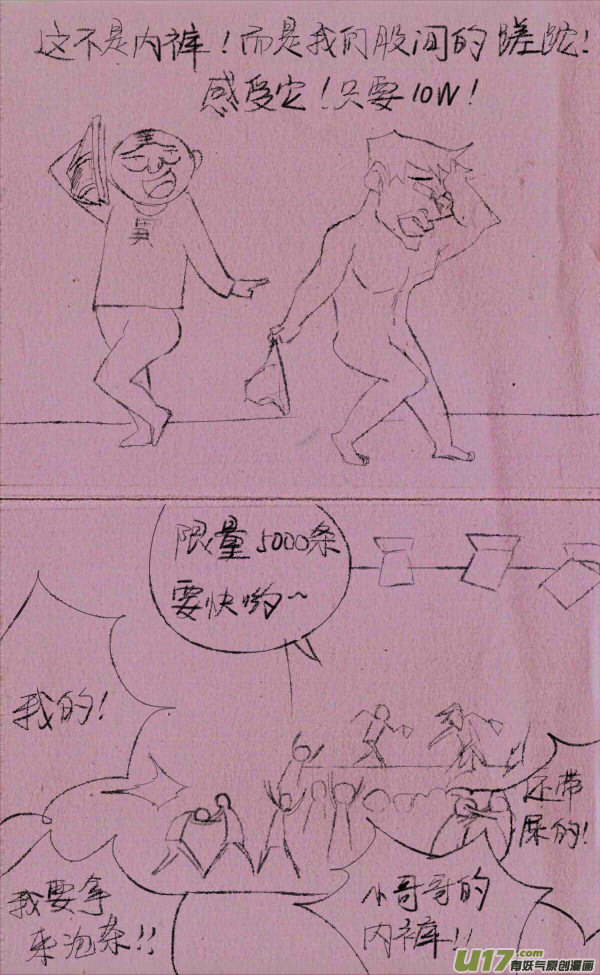 这不是内裤！而是我们股间的蹉跎！
感受它！只要10W！
限量5000条
要快哟~
我的！
还带
屎的！
我要拿
来泡茶！！
小哥哥的
内裤！！
U17.com
有妖气原创漫画